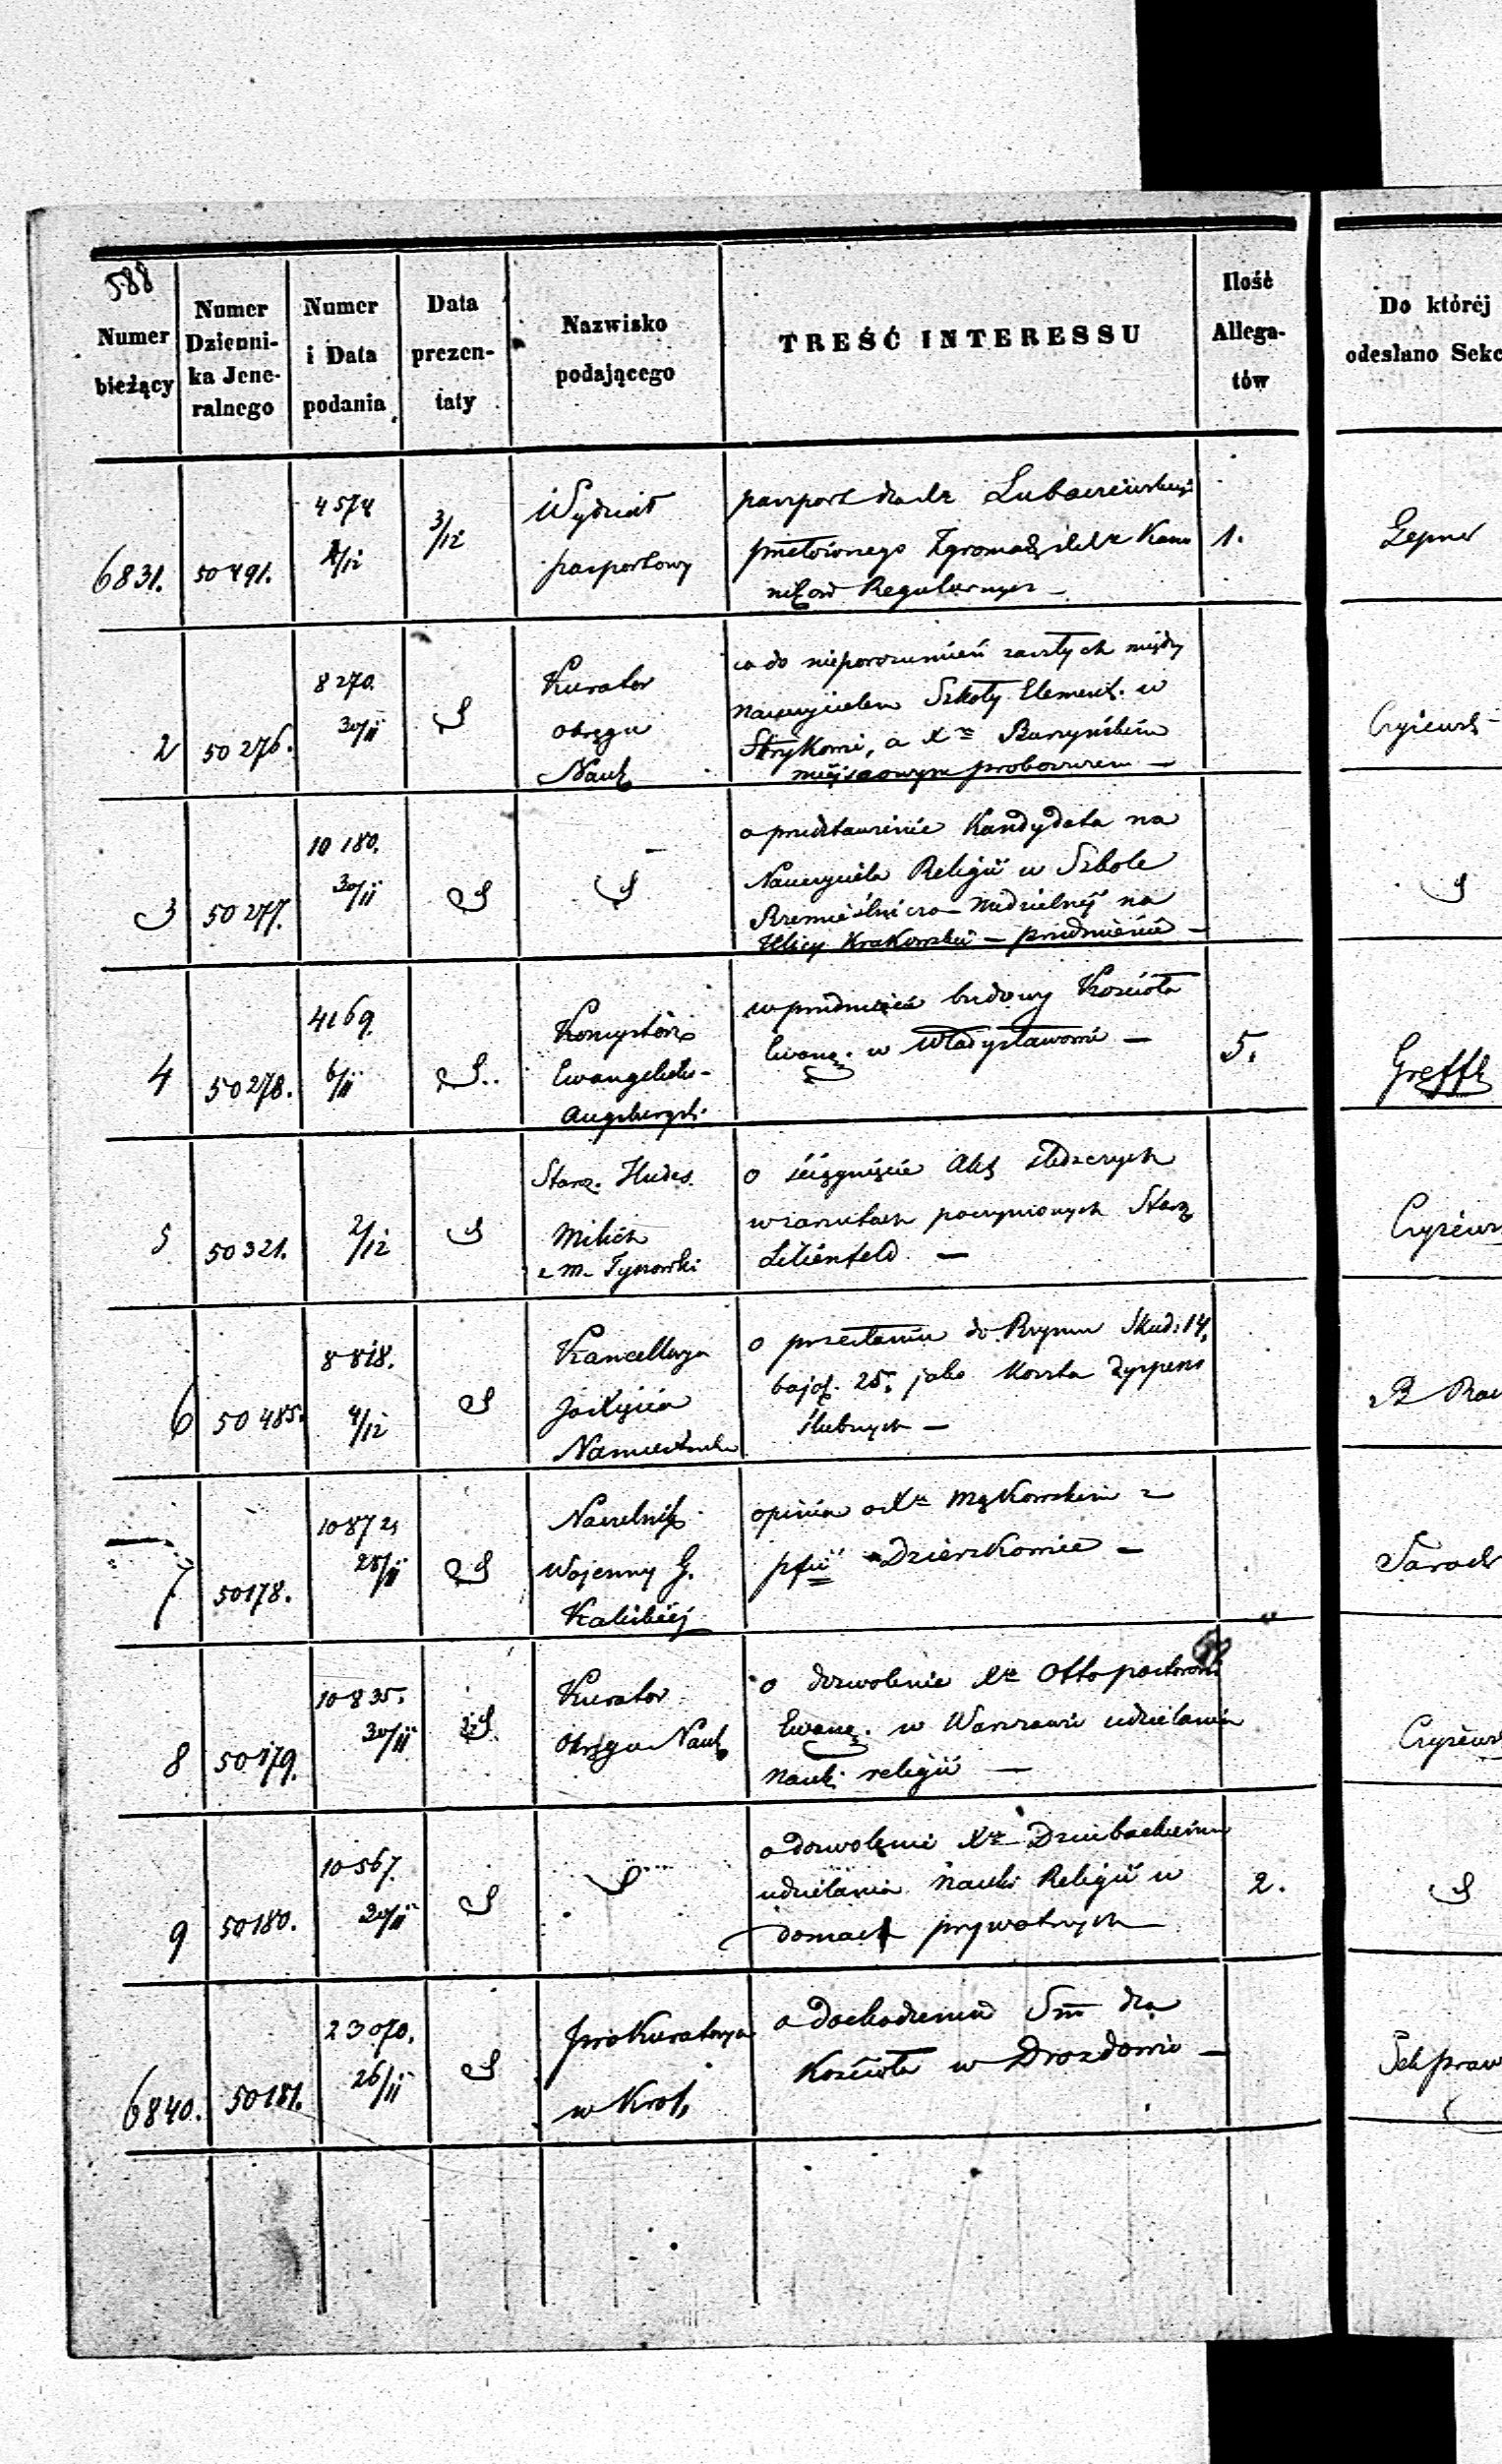 588
Numer bieżący
Numer Dzienni-
ka Jene-
ralnego
Numer
i Data
podania
Data
prezen-
taty
Nazwisko
podającego
TREŚĆ INTERESSU
Ilość
Allega-
tów
Do któréj
odesłano
6831.
50491.
4574
/12
3/12
Wydział
pasportowy
pasport dla
Zgromadz
Regularnych
1.
Lepner
2
50276.
8270.
30/11
Kurator
Okręgu
Nauk
co do nieporozumień zaszłych między
Nauczycielem Szkoły Element. w
Strykowie, a Xm Burzyńskim
miejscowym proboszczem —
3
50277.
10180.
30/11
o przedstawienie Kandydata na
Nauczyciela Religii w Szkole
Rzemieślniczo-Niedzielnéj na
Ulicy Krakowskie — przedmieście —
4
50278.
4169.
6/11
Konsystorz
Ewangelicko-
Augsburgski.
w przedmiocie budowy Kościoła
Ewang. w Władysławowie —
5.
5
50321.
2/12
Starz. Hudes
Milich
Tyszowski
o ściągnięcie Akt śledczych
w zarzutach poczynionych Starz
Lilienfeld —
6
50485.
8818.
4/12
Kancellarya
JO Xięcia
Namiestnika
o przesłaniu do Rzymu Skud: 14,
bajok. 25, jako Koszta dyspens
ślubnych —
7
50178.
1087
28/11
Naczelnik
Wojenny G.
Kaliskiéj
opinia o Xu Mąkowskim z
pfii Dzierzkowice —
8
50179.
10835.
30/11
Kurator
Okręgu Nauk
o dozwolenie Xu Otto pastorowi
Ewang. w Warszawie udzielania
Nauki religii —
9
50180.
10567.
30/11
o dozwolenie Xu
udzielania Nauki Religii w
domach prywatnych
2.
6840.
50181.
23070.
26/11
Prokuratorya
w Król.
o dochodzeniu Sm dla
Kościoła w Drozdowie —